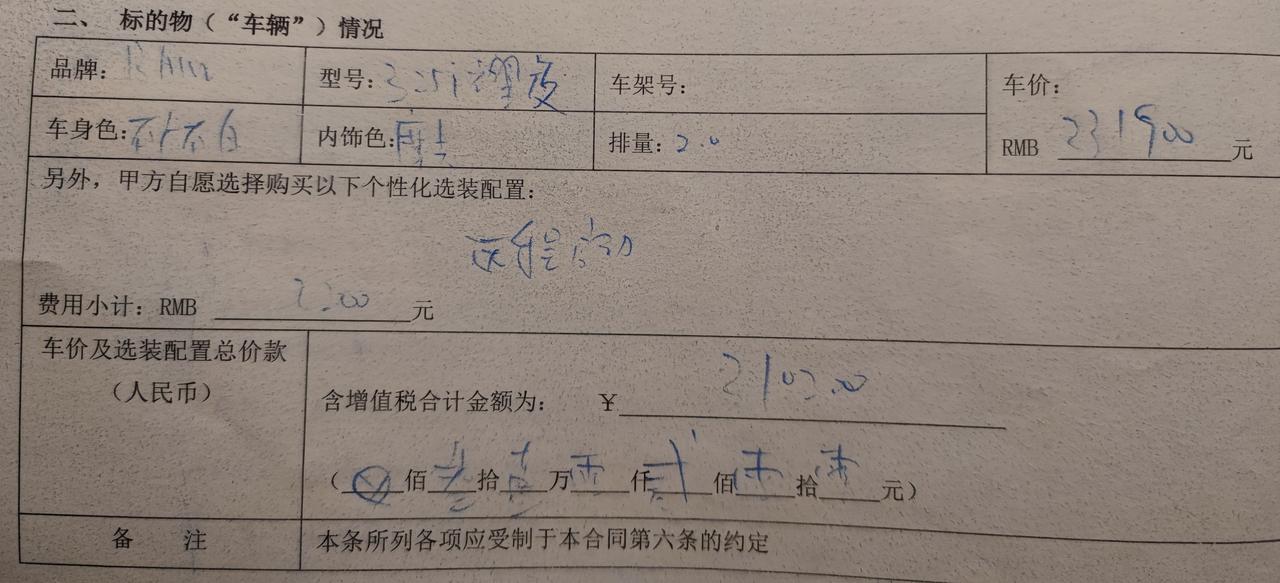 二、 标的物（“车辆”）情况
品牌： 型号： 325i 车架号： 车价：
车身色： 白 内饰色： 排量：2.0 RMB 231900 元
另外，甲方自愿选择购买以下个性化选装配置：
远程启动
费用小计：RMB 元
车价及选装配置总价款
（人民币）
含增值税合计金额为： ¥
（ 佰 拾 万 仟 贰 佰 拾 元）
备 注 本条所列各项应受制于本合同第六条的约定